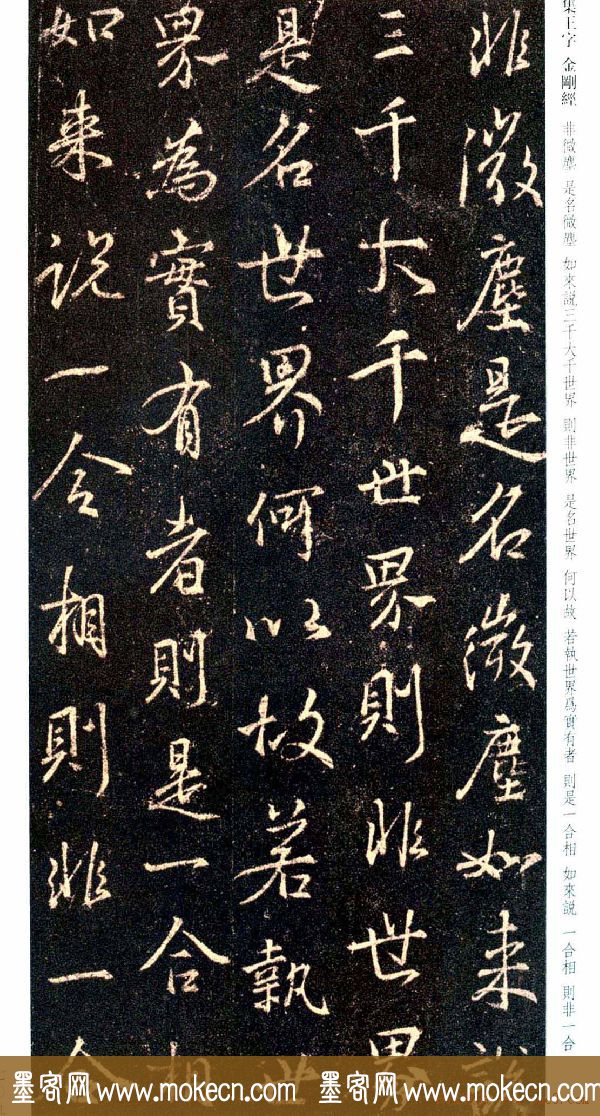 集王字 金剛經 非微塵 是名微塵 如來説三千大千世界 則非世界 是名世界 何以故 若執世界爲實有者 則是一合相 如來説 一合相 則非一合
非微塵是名微塵如来説
三千大千世界則非世界
是名世界何以故若執世
界為實有者則是一合相
如来説一合相則非一合
墨客网 www.mokecn.com 墨客网 www.mokecn.com